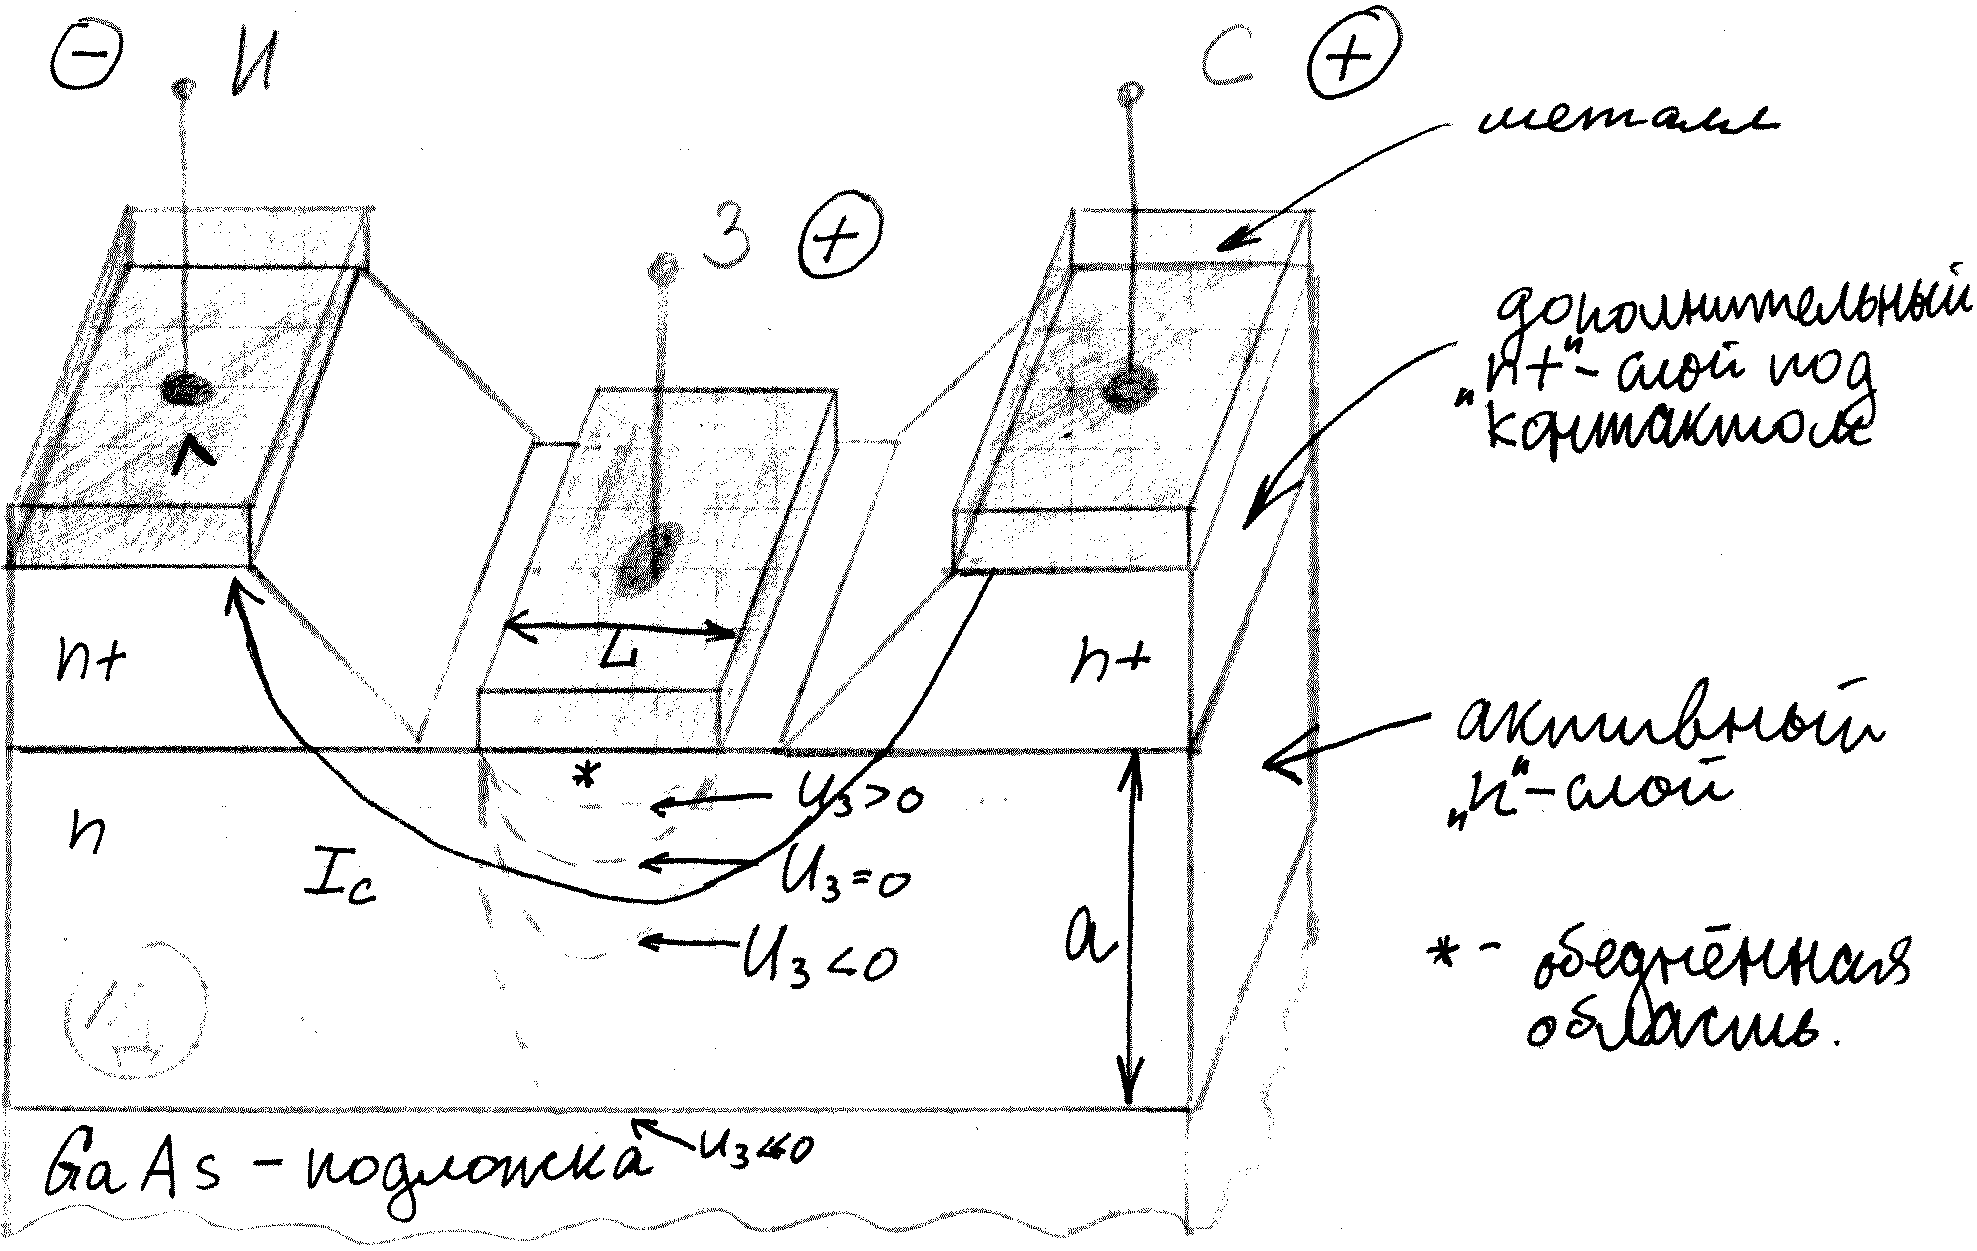 − И
С +
металл
З +
дополнительный
"n+"- слой под
контактом
L
n+
n+
активный
"n"- слой
*
Uз>0
n
Ic
Uз=0
Uз<0
a
* - обеднённая
область.
Uз≪0
GaAs - подложка